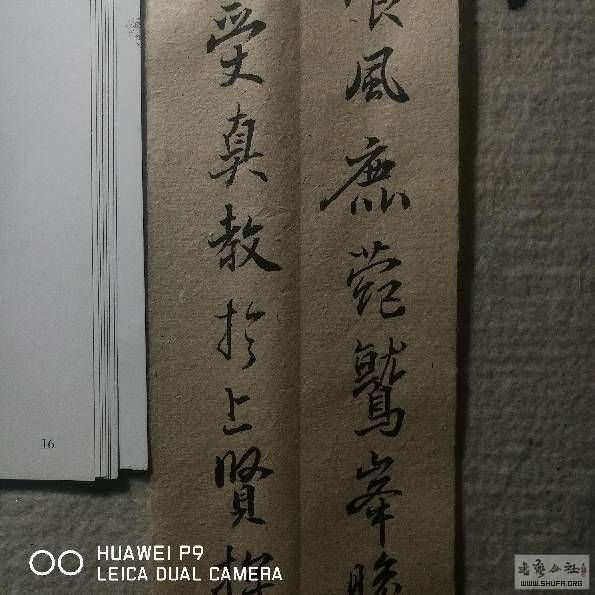 飡風鹿苑鷲峯瞻
受真教於上賢探
16
HUAWEI P9
LEICA DUAL CAMERA
书法公社
WWW.SHUFA.ORG